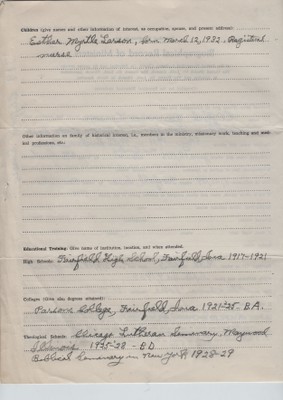 Children (give names and other information of interest, as occupation, spouse, and present address):
Esther Myrtle Larson, born March 12, 1932. Registered
nurse
Other information on family of historical interest, i.e., members in the ministry, missionary work, teaching and med-
ical professions, etc.:
Educational Training: Give name of institution, location, and when attended.
High Schools: Fairfield High School, Fairfield, Iowa 1917-1921
Colleges (Give also, degrees attained):
Parsons College, Fairfield, Iowa 1921-'25 B.A.
Theological Schools: Chicago Lutheran Seminary, Maywood
Illinois 1925-'28 - B.D
Biblical Seminary in New York, 1928-29